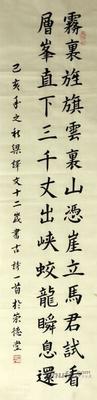 霧裏旌旗雲裏山憑崖立馬君試看
層峯直下三千丈出峽蛟龍瞬息還
己亥年之秋梁鐸文十二歲書古詩一首於崇德堂